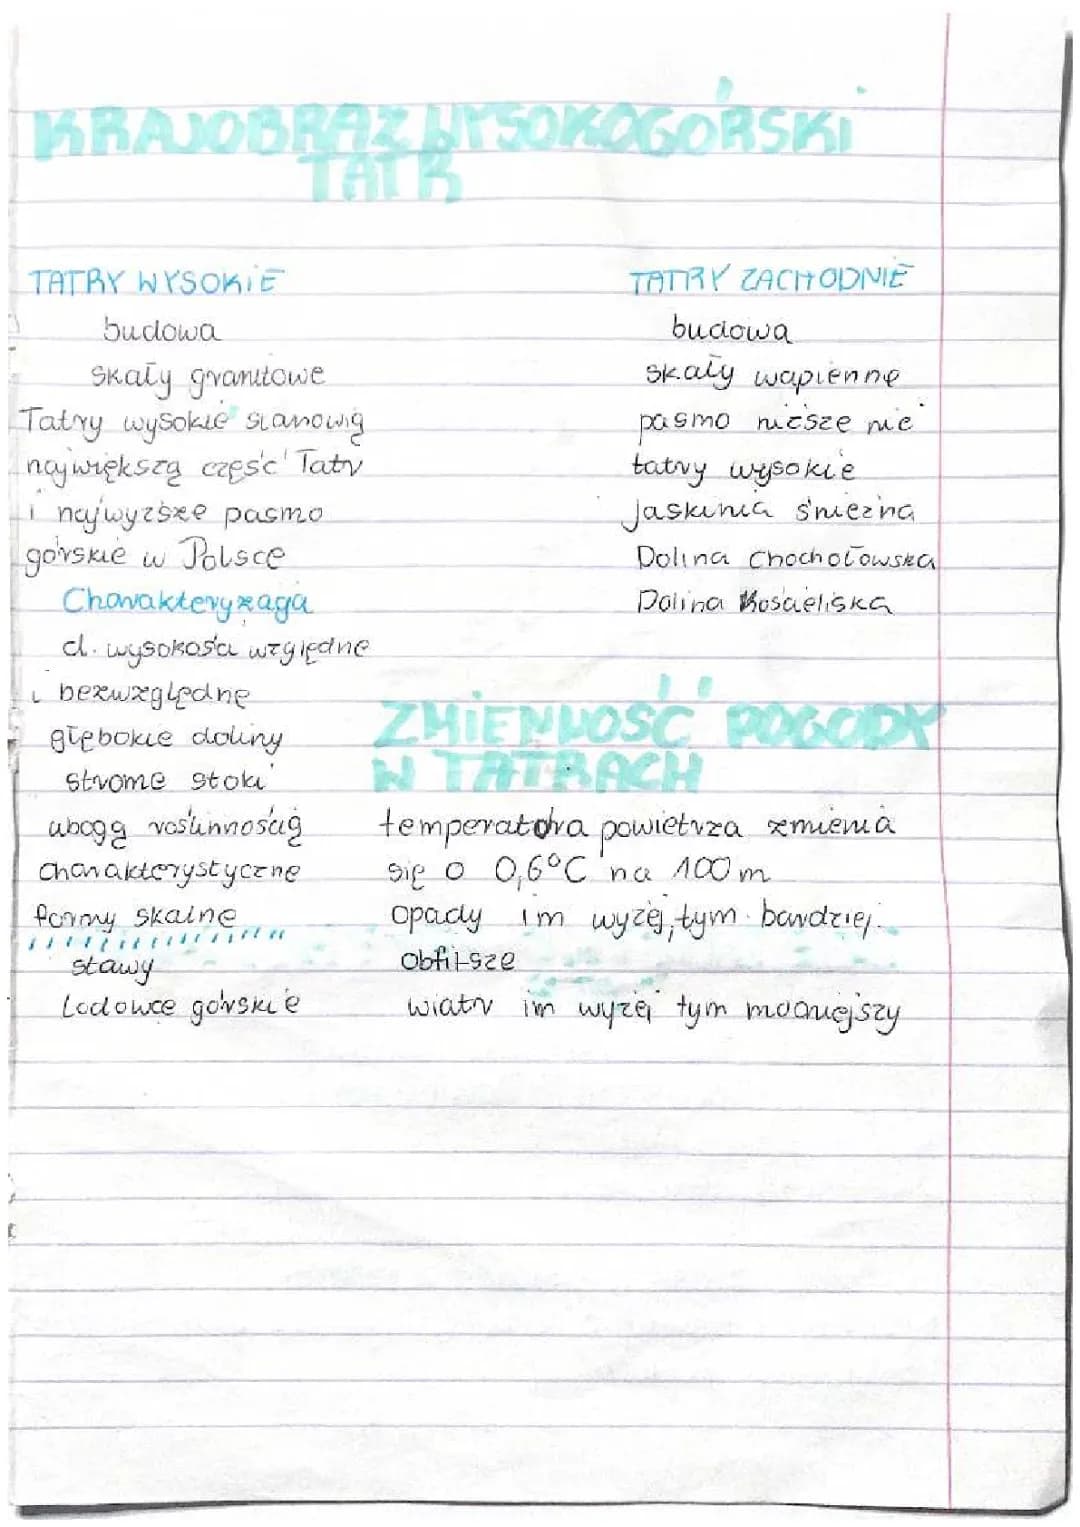 KRAJOBRAZ WYSOKOGÓRSKI
TATR
TATRY WYSOKIE
budowa
skały granitowe
Tatry wysokie stanowią
największą część Tatr
i najwyższe pasmo
górskie w Polsce
Charakteryzują
d. wysokości względne
i bezwzględne
głębokie doliny
strome stoki
ubogą roślinnością
charakterystyczne
formy skalne
stawy
Lodowce górskie
TATRY ZACHODNIE
budowa
skały wapienne
pasmo niższe niż
tatry wysokie
Jaskinia śnieżna
Dolina Chochołowska
Dolina Kościeliska
ZMIENNOŚĆ POGODY
W TATRACH
temperatura powietrza zmienia
się o 0,6°C na 100 m
opady im wyżej, tym bardziej
obfitsze
wiatr im wyżej tym mocniejszy